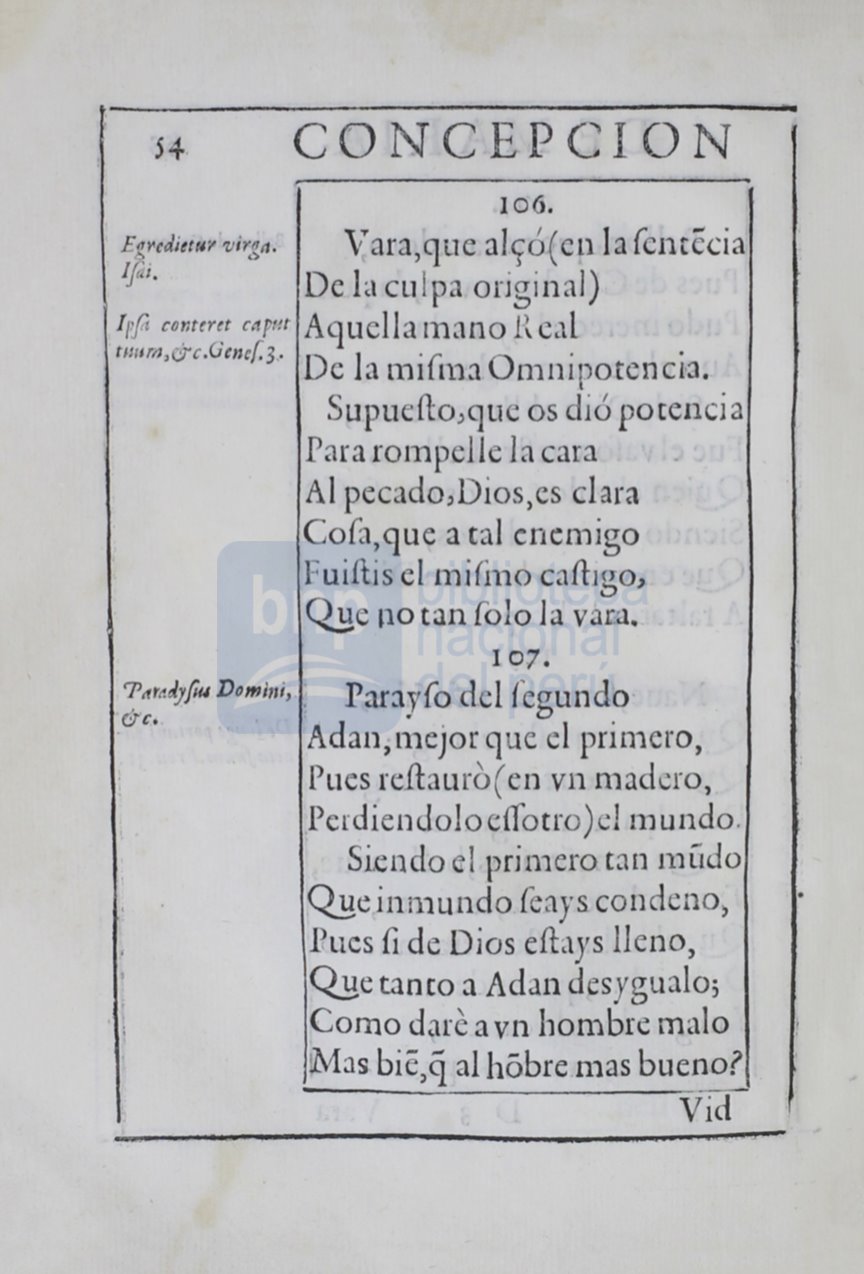 54 CONCEPCION
106.
Egredietur virga.
Iſai.
Ipſa conteret caput
tuum,&c.Geneſ.3.
Vara,que alçó(en la ſentēcia
De la culpa original)
Aquella mano Real
De la miſma Omnipotencia.
Supueſto,que os dió potencia
Para rompelle la cara
Al pecado,Dios,es clara
Coſa,que a tal enemigo
Fuiſtis el miſmo caſtigo,
Que no tan ſolo la vara.
107.
Paradyſus Domini,
&c.
Parayſo del ſegundo
Adan,mejor que el primero,
Pues reſtaurò(en vn madero,
Perdiendolo eſſotro)el mundo.
Siendo el primero tan mūdo
Que inmundo ſeays condeno,
Pues ſi de Dios eſtays lleno,
Que tanto a Adan desygualo;
Como darè a vn hombre malo
Mas biē,q̄ al hōbre mas bueno?
Vid
bnp biblioteca
nacional
del perú